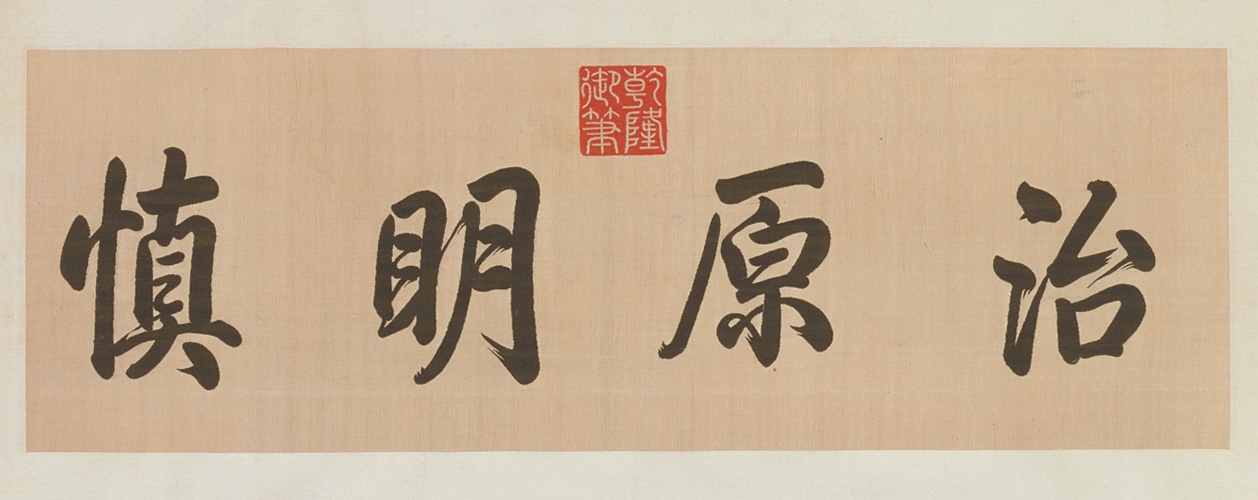 乾隆御筆
治原明慎